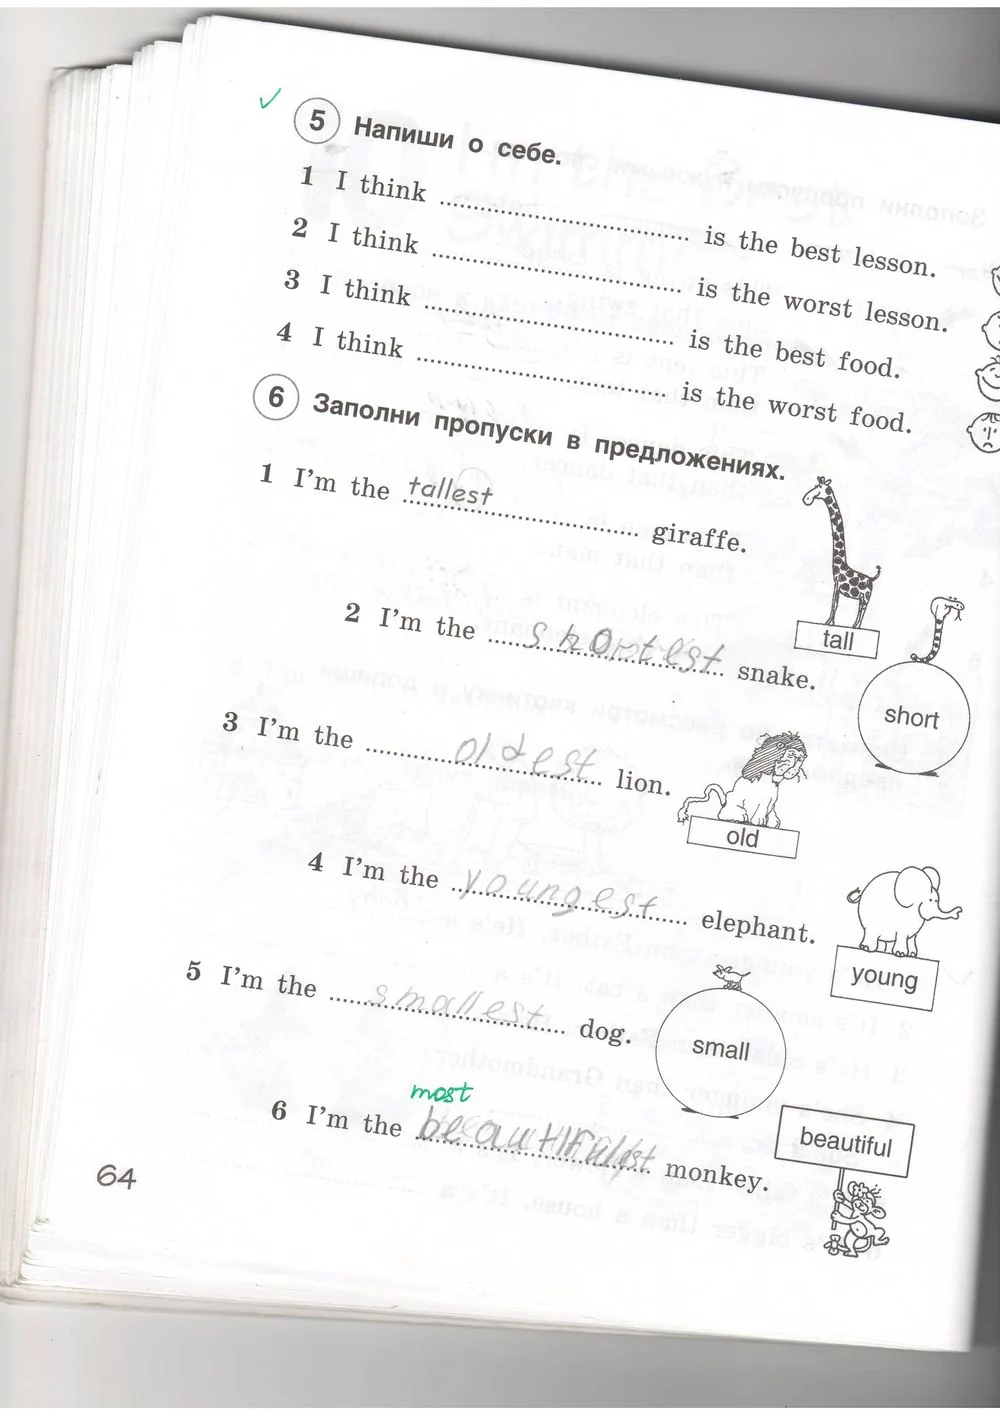 5 Напиши о себе.
1 I think ........................ is the best lesson.
2 I think ........................ is the worst lesson.
3 I think ........................ is the best food.
4 I think ........................ is the worst food.
6 Заполни пропуски в предложениях.
1 I'm the tallest giraffe.
tall
2 I'm the shortest snake.
short
3 I'm the oldest lion.
old
4 I'm the youngest elephant.
young
5 I'm the smallest dog.
small
most
6 I'm the beautifulest monkey.
beautiful
64